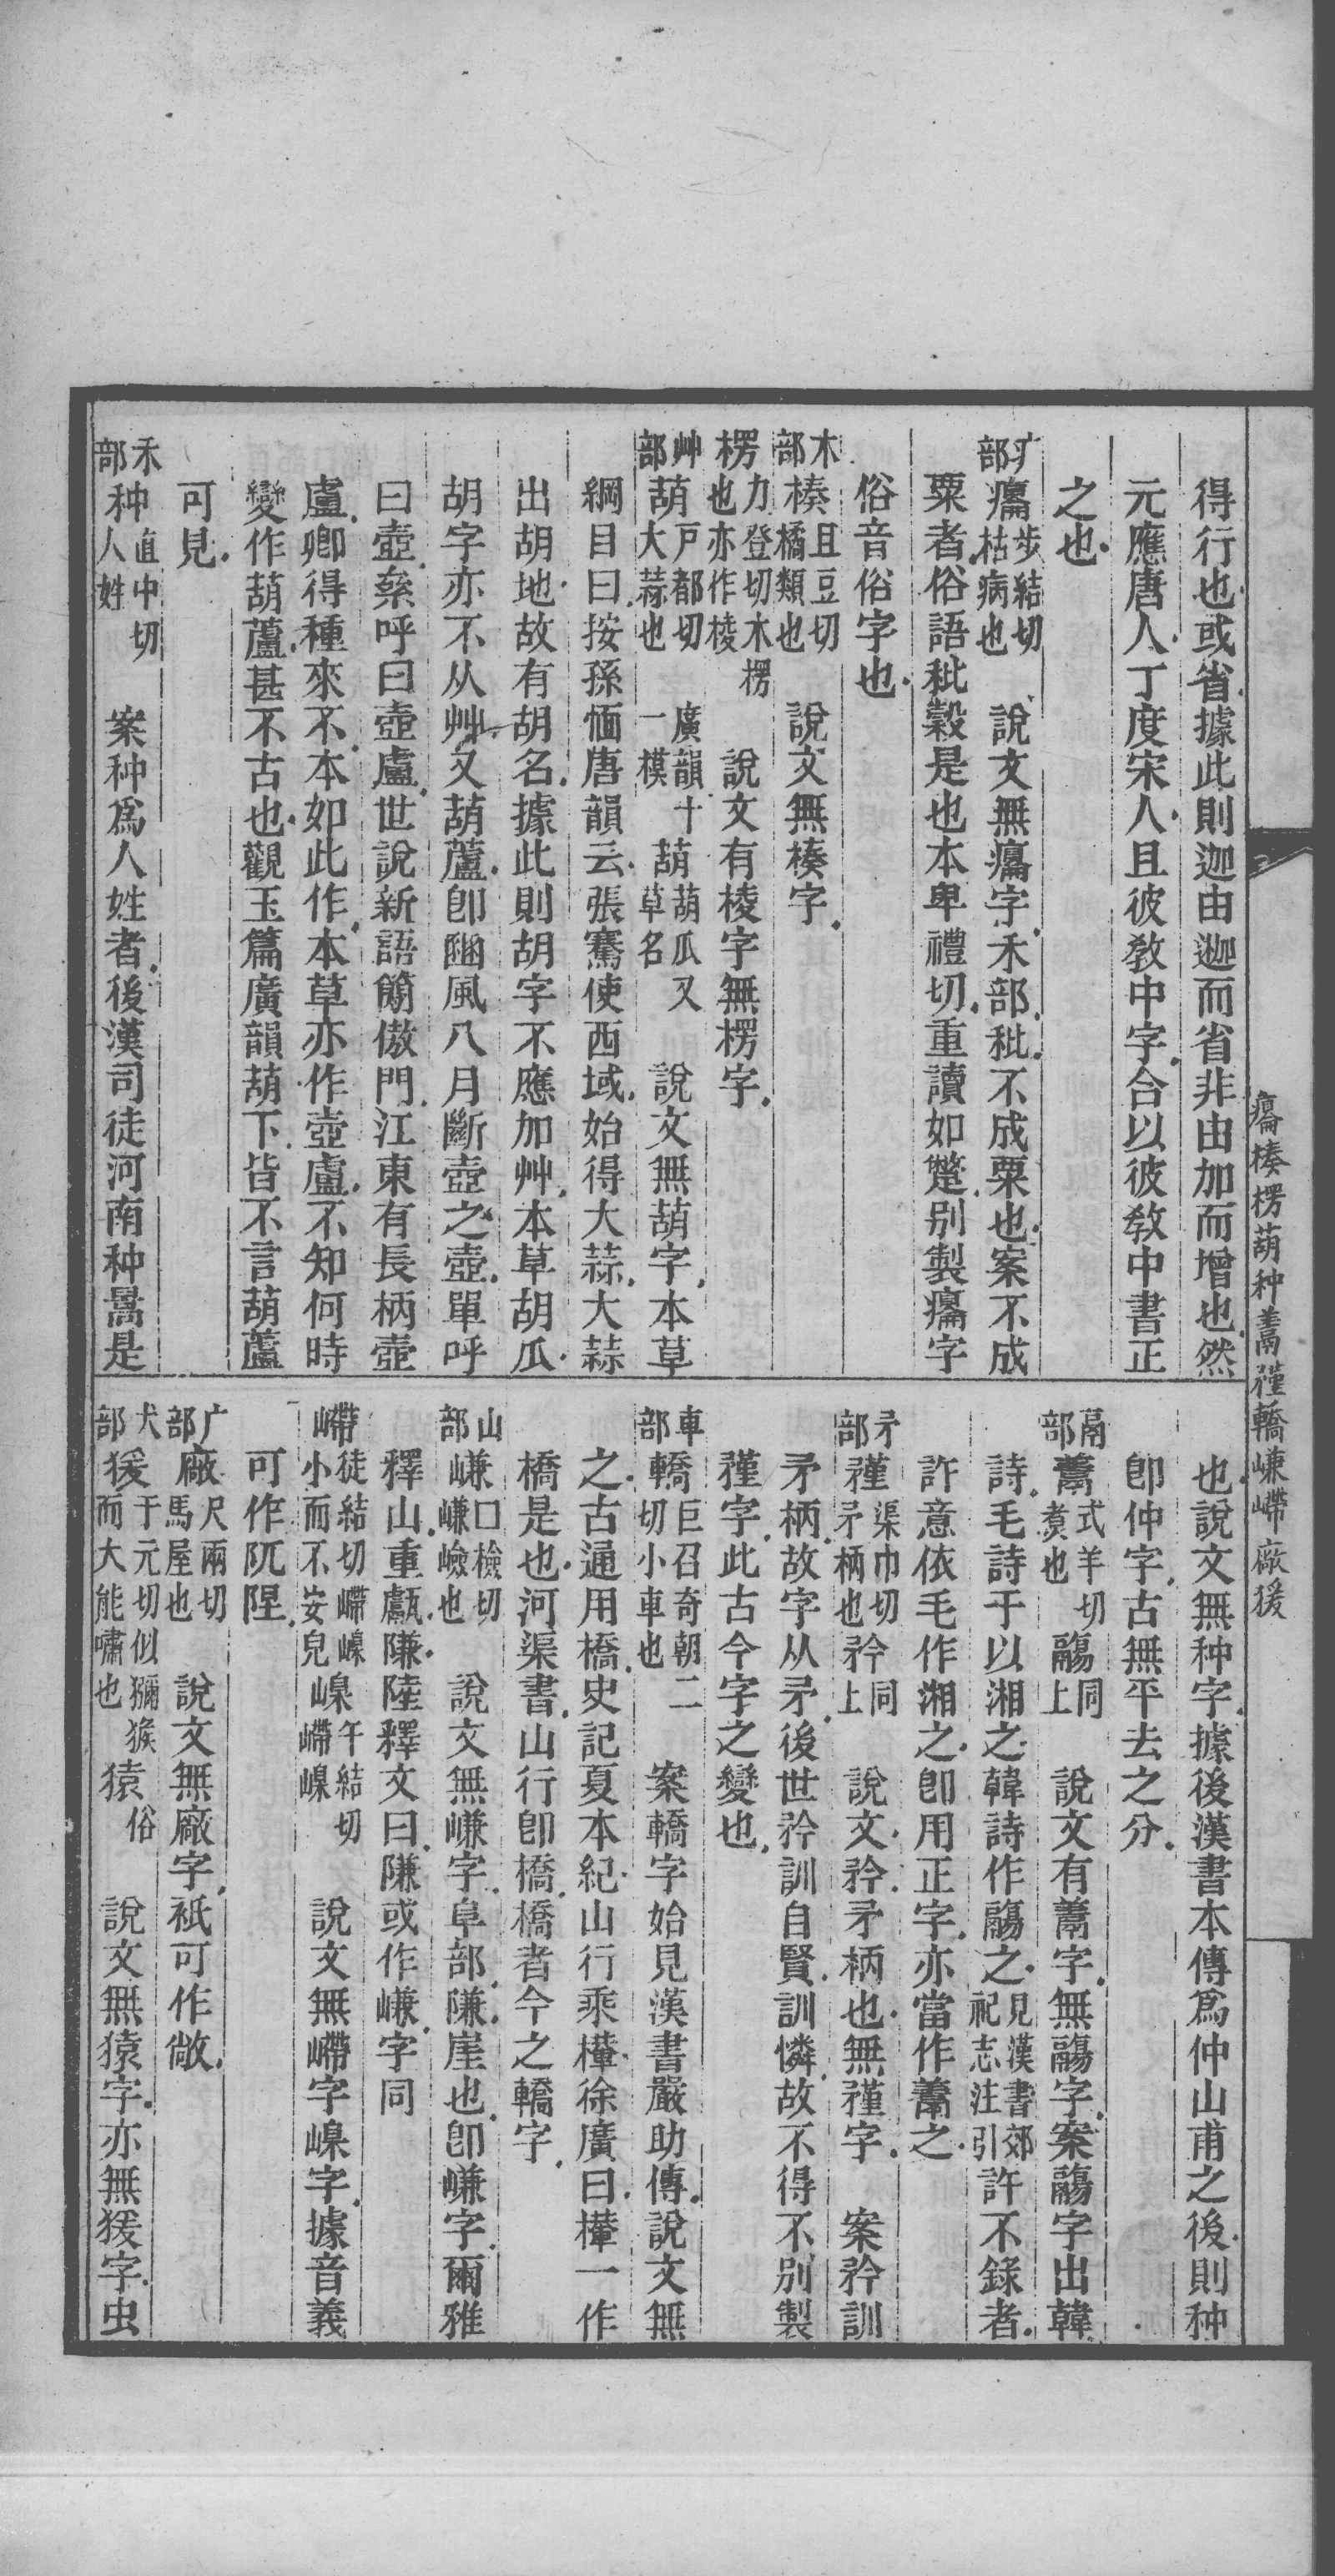 得行也或省據此則迦由迦而省非由加而增也然
元應唐人丁度宋人且彼敎中字合以彼敎中書正
之也
疒部 㿜步結切枯病也 說文無㿜字禾部秕不成粟也案不成
粟者俗語秕榖是也本卑禮切重讀如蹩別製㿜字
俗音俗字也
木部 楱且豆切橘類也 說文無楱字
楞力登切木楞也亦作棱 說文有棱字無楞字
艸部 葫戶都切大蒜也 廣韻十一模 葫葫瓜又草名 說文無葫字本草
綱目曰按孫愐唐韻云張騫使西域始得大蒜大蒜
出胡地故有胡名據此則胡字不應加艸本草胡瓜
胡字亦不从艸又葫蘆卽豳風八月斷壺之壺單呼
曰壺絫呼曰壺盧世說新語簡傲門江東有長柄壺
盧卿得種來不本如此作本草亦作壺盧不知何時
變作葫蘆甚不古也觀玉篇廣韻葫下皆不言葫蘆
可見
禾部 种直中切人姓 案种爲人姓者後漢司徒河南种暠是
也說文無种字據後漢書本傳爲仲山甫之後則种
卽仲字古無平去之分
鬲部 鬺同上 說文有字無鬺字案鬺字出韓
詩毛詩于以湘之韓詩作鬺之見漢書郊祀志注引許不錄者
許意依毛作湘之卽用正字亦當作之
矛部 矜渠巾切矛柄也 矜同上 說文矜矛柄也無字 案矜訓
矛柄故字从矛後世矜訓自賢訓憐故不得不別製
字此古今字之變也
車部 轎巨召奇朝二切小車也 案轎字始見漢書嚴助傳說文無
之古通用橋史記夏本紀山行乘檋徐廣曰檋一作
橋是也河渠書山行卽橋橋者今之轎字
山部 嵰口檢切嵰嶮也 說文無嵰字阜部隒崖也卽嵰字爾雅
釋山重甗隒陸釋文曰隒或作嵰字同
嵽徒結切嵽嵲小而不安皃 嵲午結切嵽嵲 說文無嵽字嵲字據音義
可作阢隉
广部 厰尺兩切馬屋也 說文無厰字衹可作敞
犬部 猨于元切似獼猴而大能嘯也 猿俗 說文無猿字亦無猨字虫
㿜楱楞葫种轎嵰嵽厰猨